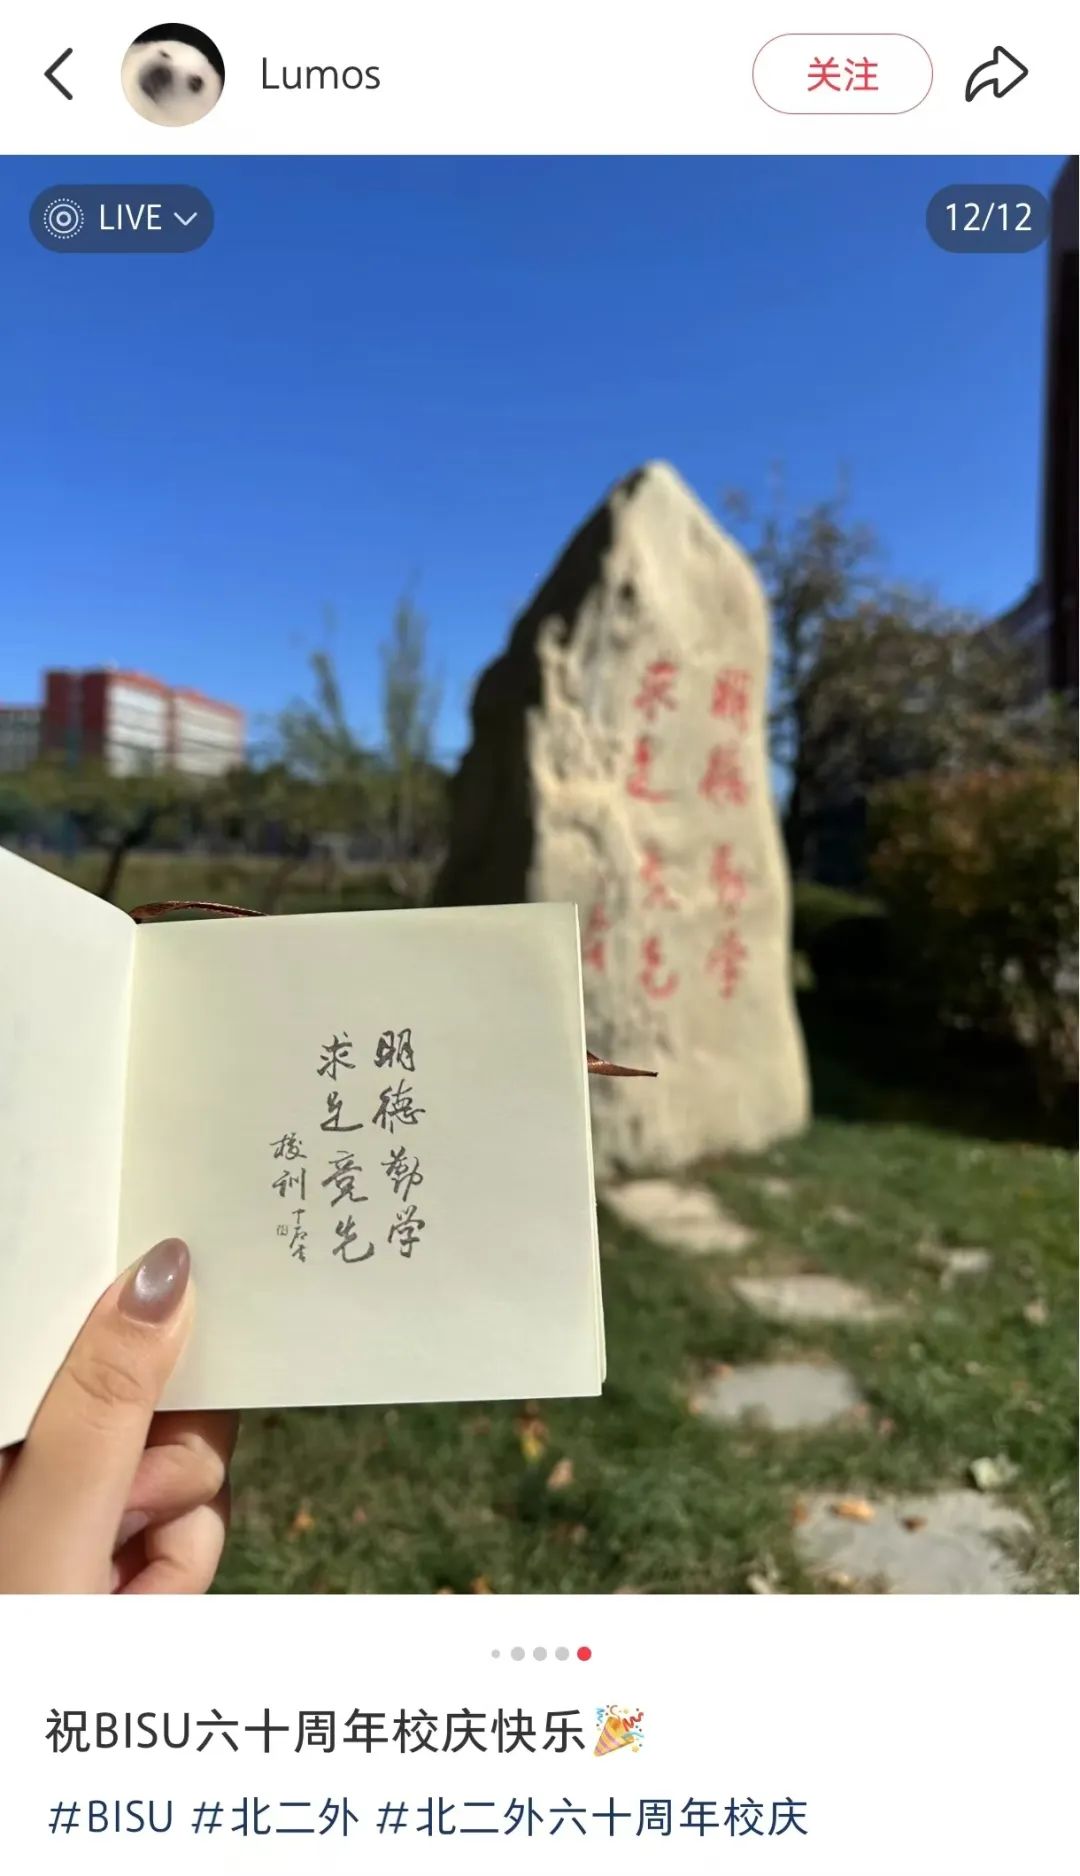 Lumos
关注
LIVE
12/12
明德勤学
求是竞先
明德勤学
求是竞先
校训
祝BISU六十周年校庆快乐🎉
#BISU #北二外 #北二外六十周年校庆